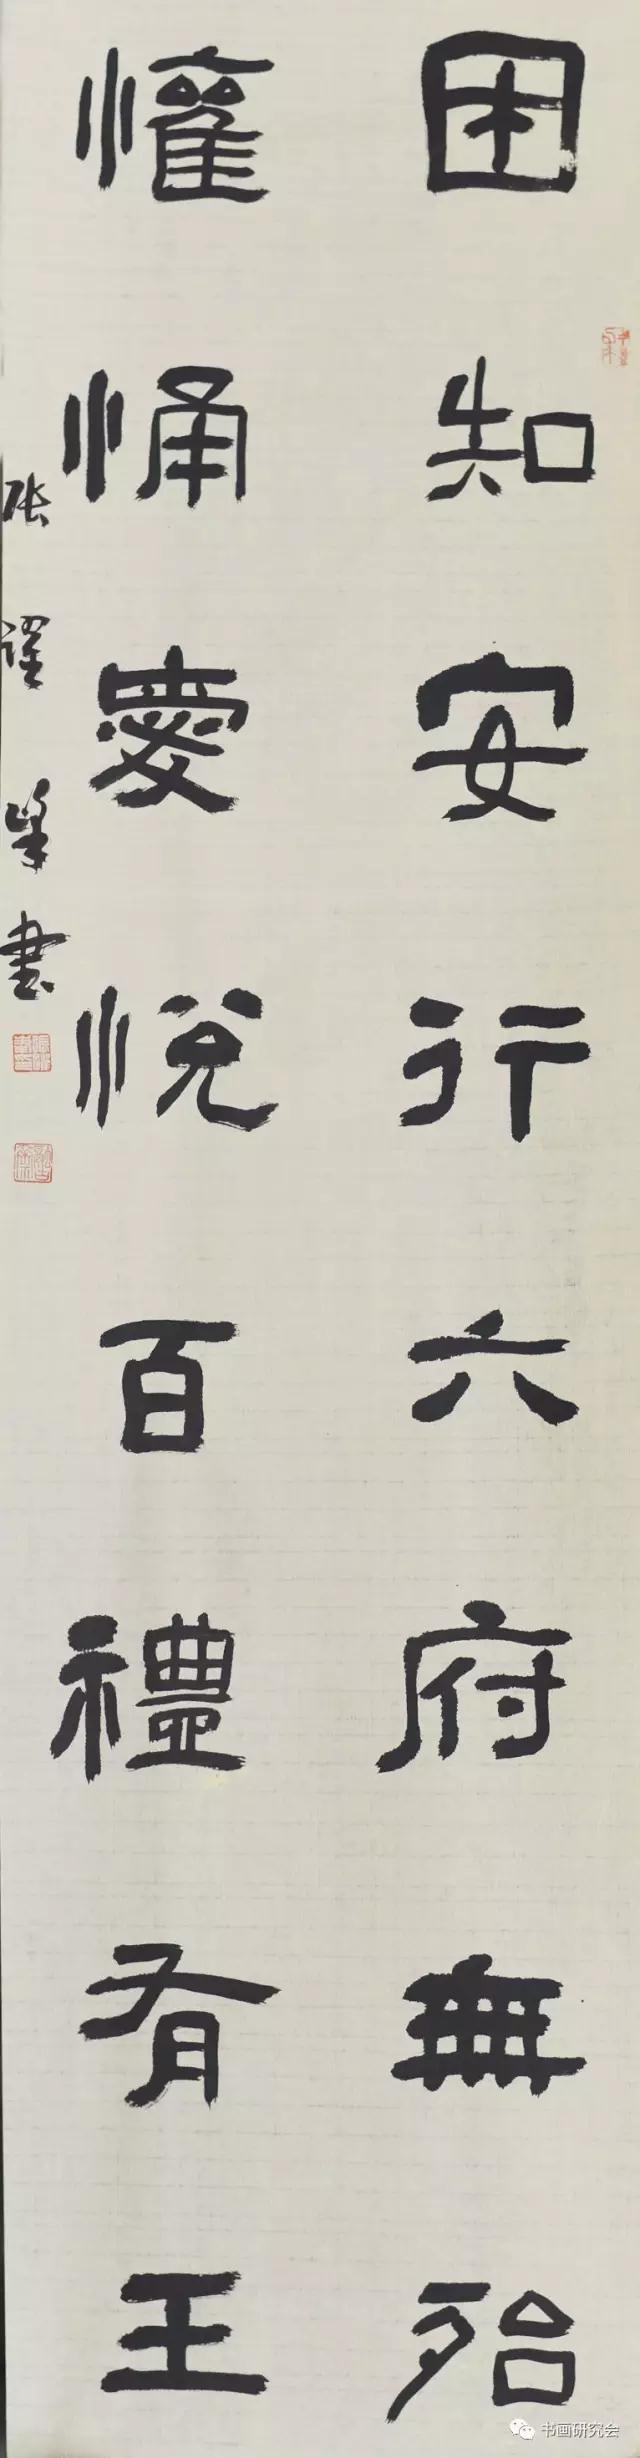 困知安行六府無殆
懽悀慶悅百禮有王
張書
书画研究会